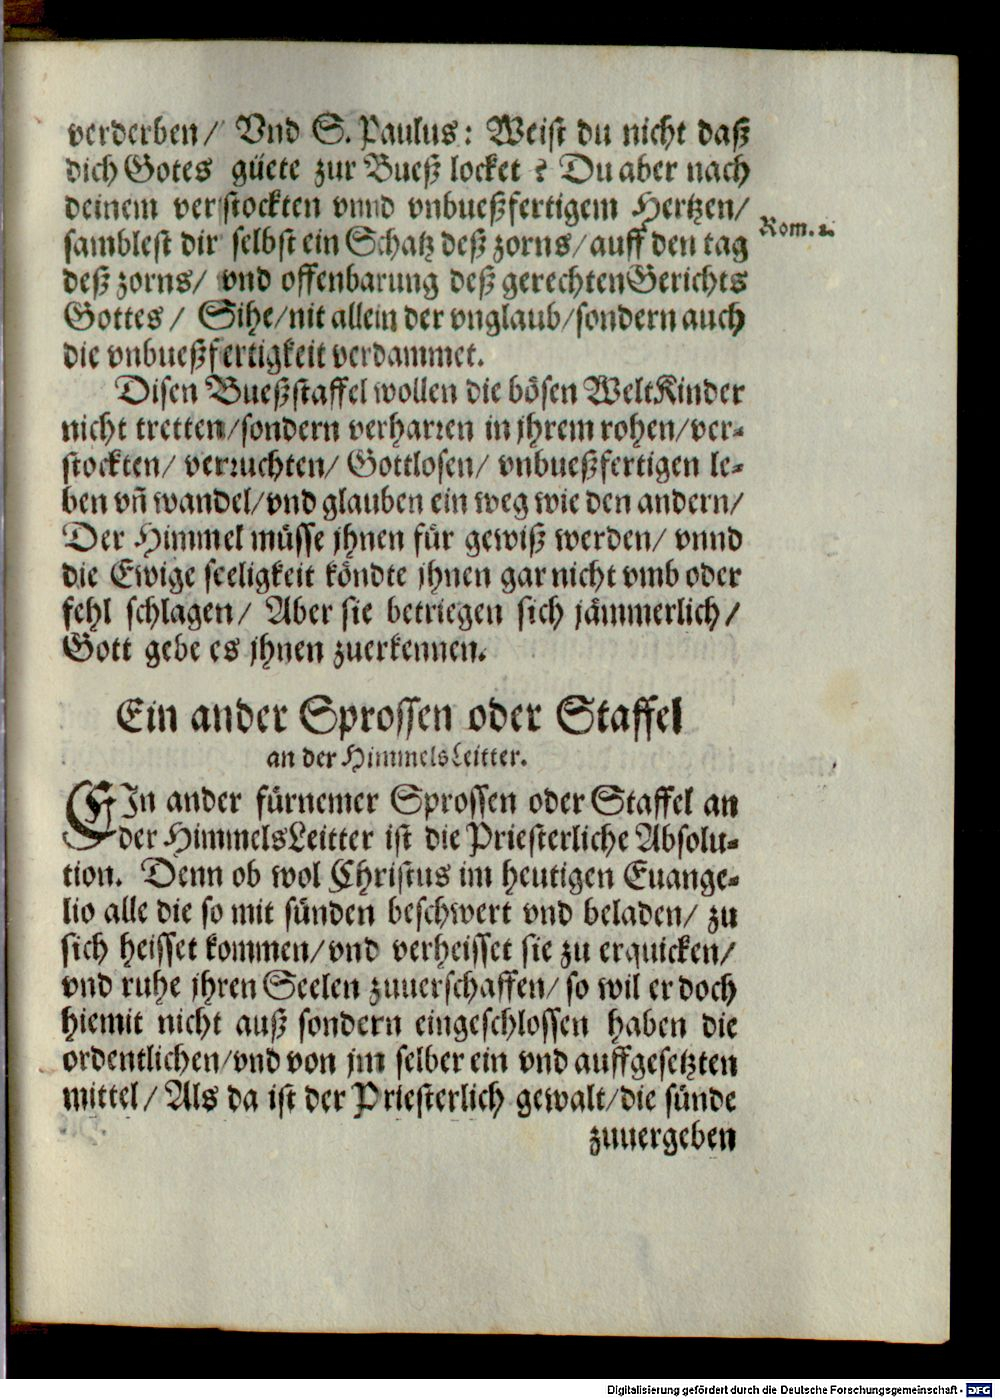 verderben/ Vnd S. Paulus: Weist du nicht daß
dich Gotes güete zur Bueß locket ? Du aber nach
deinem verstockten vnnd vnbueßfertigem Hertzen/
samblest dir selbst ein Schatz deß zorns/ auff den tag
Rom. 2.
deß zorns/ vnd offenbarung deß gerechten Gerichts
Gottes / Sihe/ nit allein der vnglaub/ sondern auch
die vnbueßfertigkeit verdammet.
Disen Bueßstaffel wollen die bösen WeltKinder
nicht tretten/ sondern verharren in jhrem rohen/ ver-
stockten/ verruchten/ Gottlosen/ vnbueßfertigen le-
ben vñ wandel/ vnd glauben ein weg wie den andern/
Der Himmel müsse jhnen für gewiß werden/ vnnd
die Ewige seeligkeit köndte jhnen gar nicht vmb oder
fehl schlagen/ Aber sie betriegen sich jämmerlich/
Gott gebe es jhnen zuerkennen.
Ein ander Sprossen oder Staffel
an der HimmelsLeitter.
EIn ander fürnemer Sprossen oder Staffel an
der HimmelsLeitter ist die Priesterliche Absolu-
tion. Denn ob wol Christus im heutigen Euange-
lio alle die so mit sünden beschwert vnd beladen/ zu
sich heisset kommen/ vnd verheisset sie zu erquicken/
vnd ruhe jhren Seelen zuuerschaffen/ so wil er doch
hiemit nicht auß sondern eingeschlossen haben die
ordentlichen/ vnd von jm selber ein vnd auffgesetzten
mittel/ Als da ist der Priesterlich gewalt/ die sünde
zuuergeben
Digitalisierung gefördert durch die Deutsche Forschungsgemeinschaft - DFG